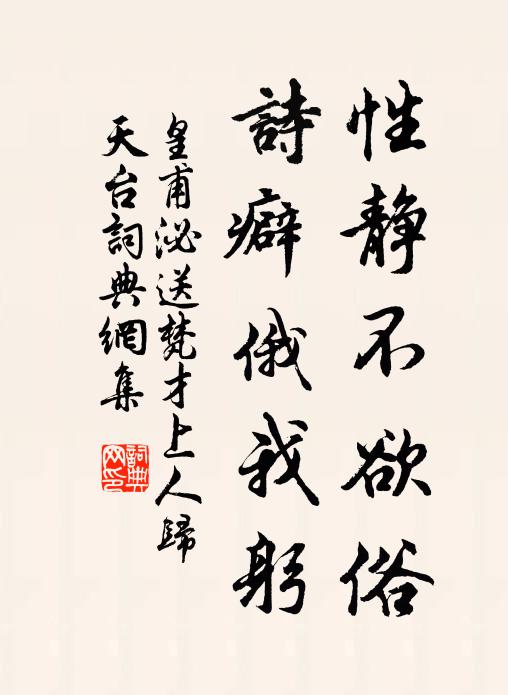 性靜不欲俗
詩癖俄我躬
皇甫泌送梵才上人歸
天台詞典網集
詞典
网印